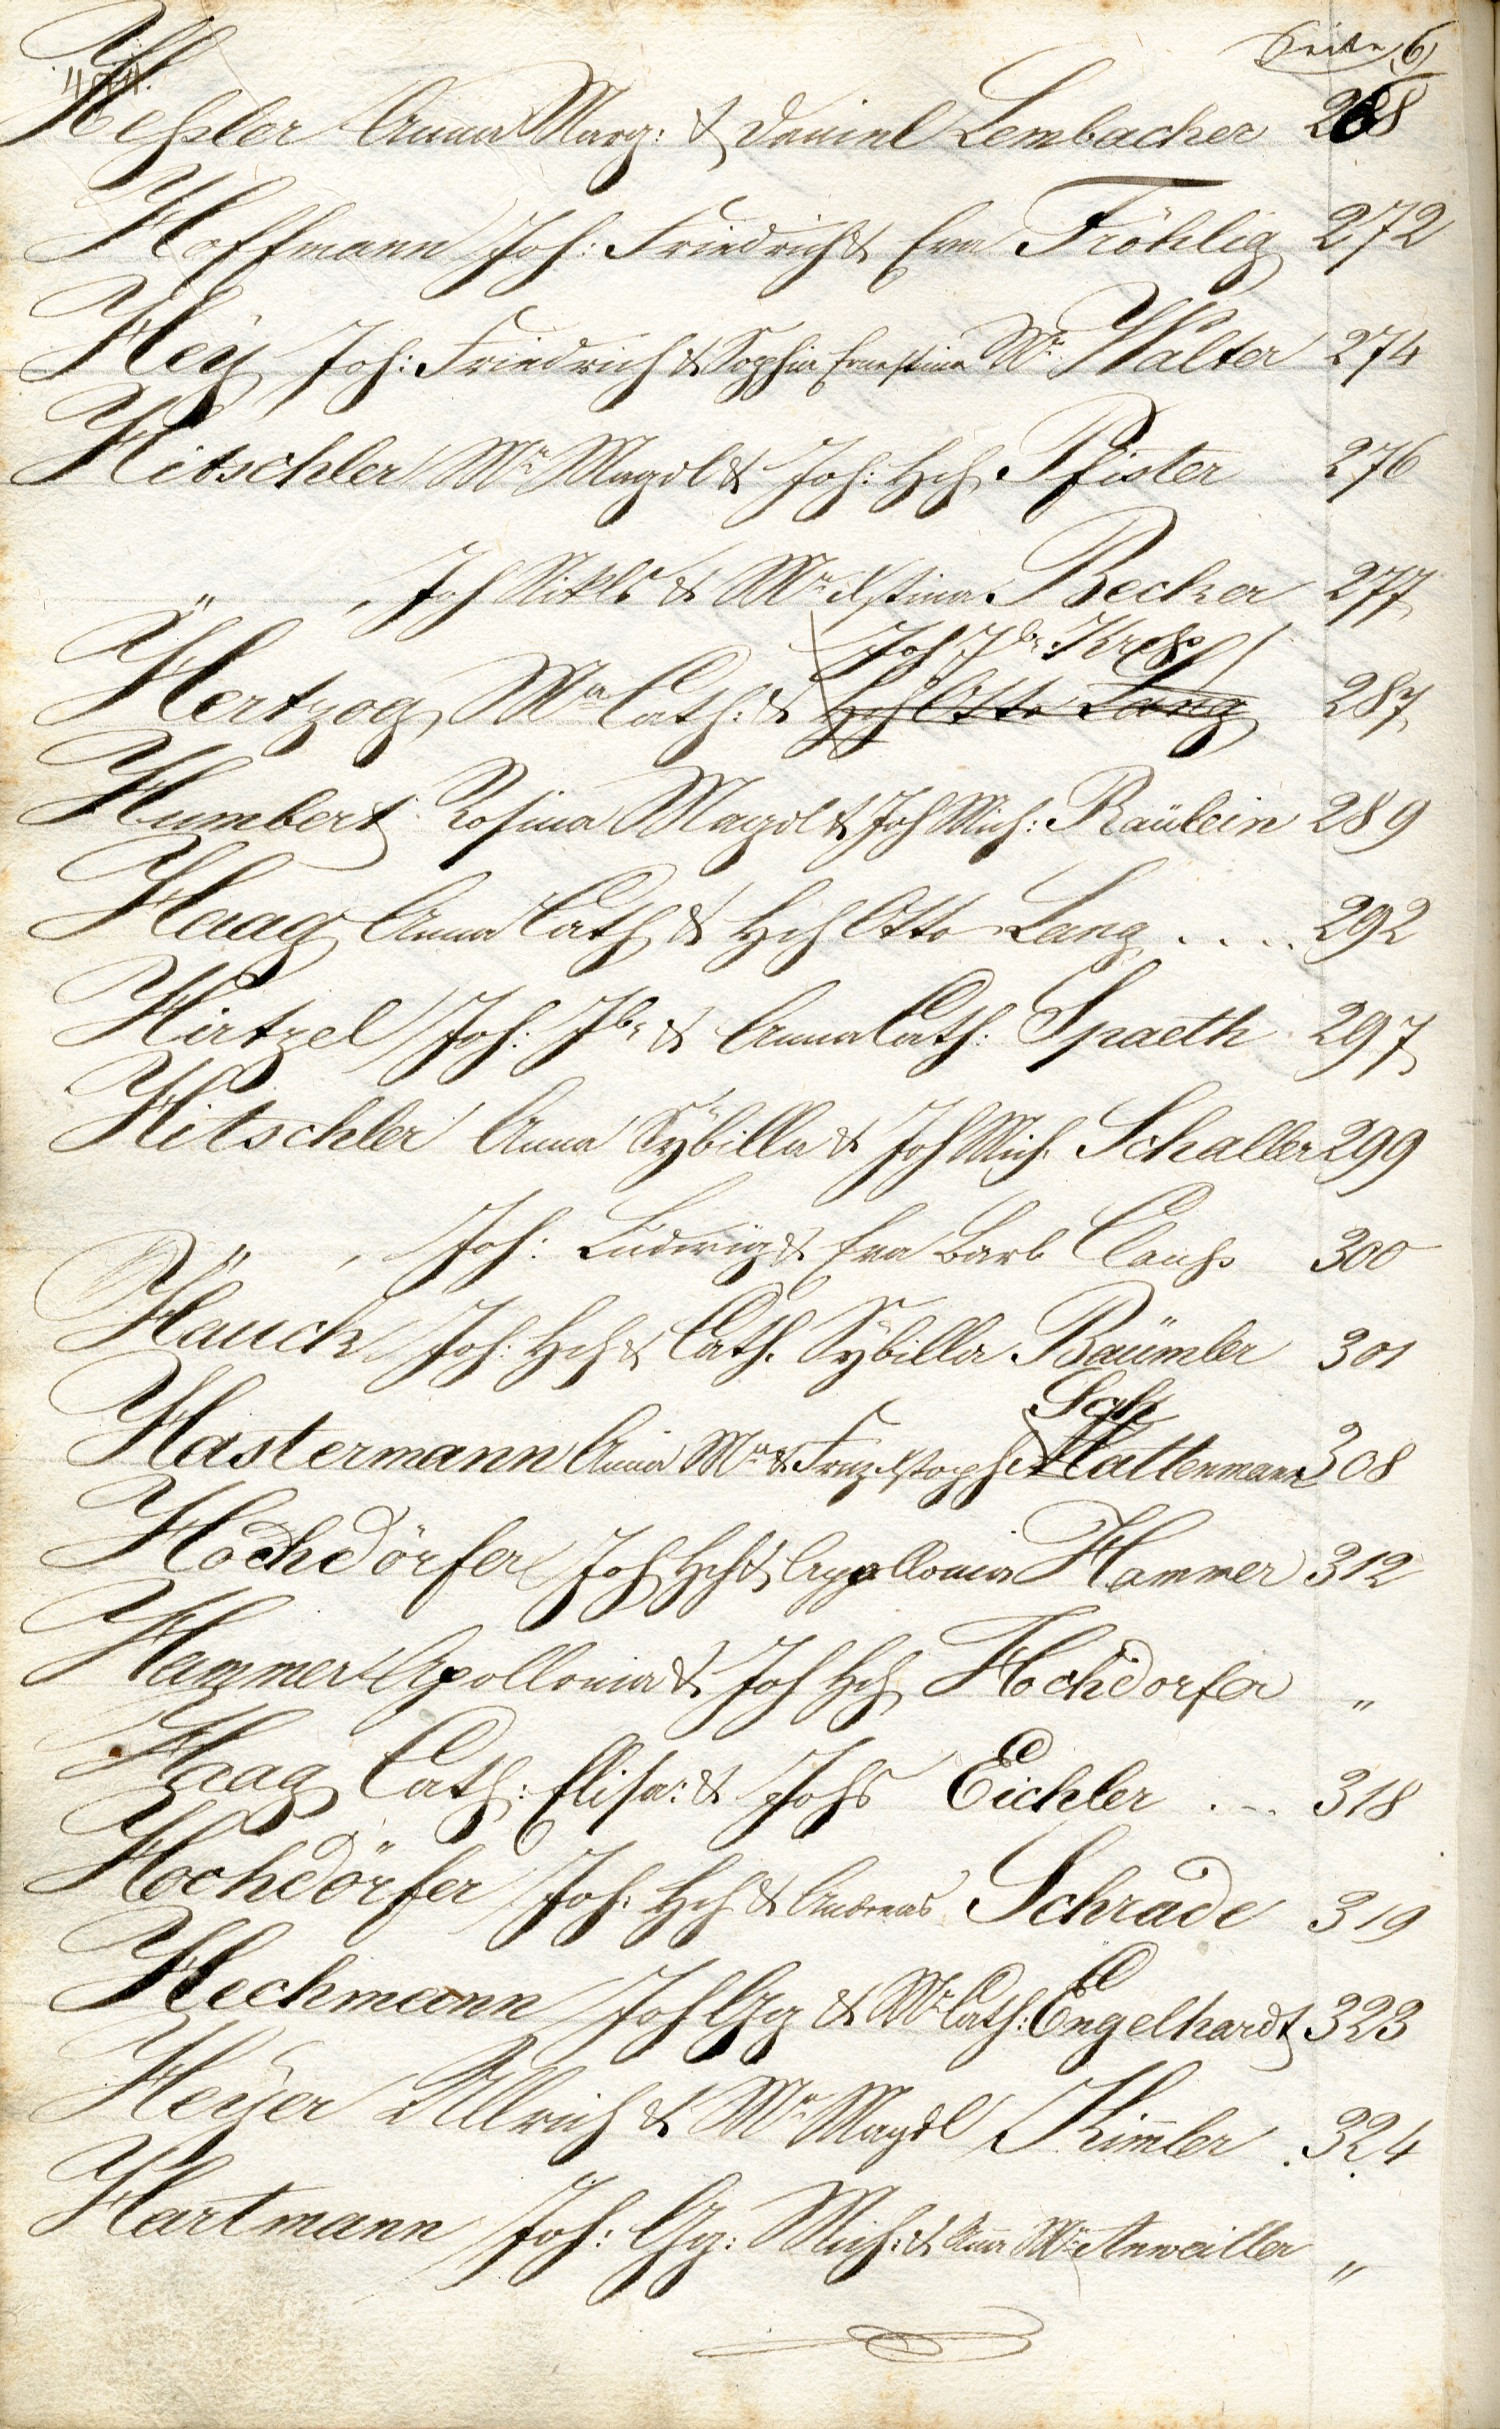 Seite 6
Heßler Anna Marg: & Daniel Lembacher 268
Hoffmann Joh: Friedrich & Eva Fröhlig 272
Heÿ Joh: Friedrich & Sophia Ernestina Mª Walter 274
Hitschler Mª Magdl & Joh: Hch Pfister 276
" , Joh Nikls & Mª Xstina Becker 277
Joh Jbr Kreß
Hertzog Mª Cath: & Hch Otto Lang 287
Humbert Rosina Magdl & Joh Mich: Räülein 289
Haag Anna Cath & Hch Otto Lang .... 292
Hirtzel Joh: Jbr & Anna Cath: Spaeth 297
Hitschler Anna Sÿbilla & Joh Mich. Schaller 299
" , Joh: Ludwig & Eva Barb Clauß 300
Hauck Joh: Hch & Cath. Sÿbilla Baümler 301
Sch
Hastermann Anna Mª & Franz Xstoph Hattenmann 308
Hochdörfer Joh Hch & Apollonia Hammer 312
Hammer Apollonia & Joh Hch Hochdorfer "
Haag Cath: Elisa: & Johs Eichler ... 318
Hochdörfer Joh: Hch & Andreas Schrade 319
Hechmann Joh Gg & Mª Cath: Engelhardt 323
Heÿer Ullrich & Mª Magdl Kim̄ler . 324
Hartmann Joh: Gg: Mich: & Anna Mª Anweiller "